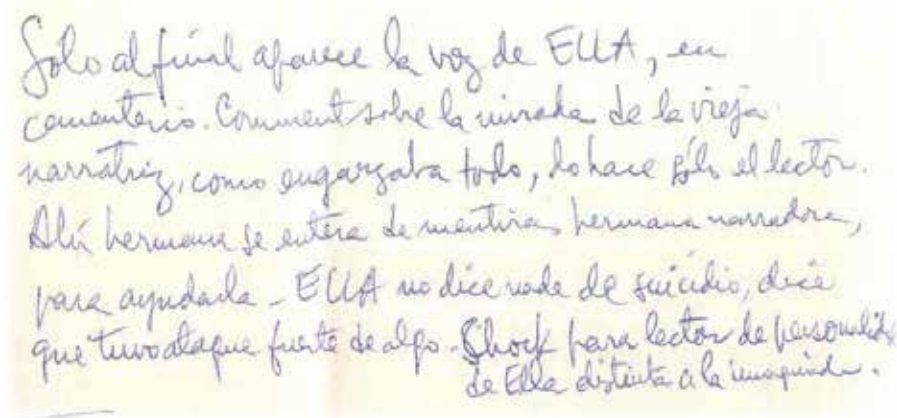 Sólo al final aparece la voz de ELLA, en
cementerio. Comment sobre la mirada de la vieja
narratriz, como engarzaba todo, lo hace sólo el lector.
Ahí hermana se entera de mentiras hermana narradora,
para ayudarla - ELLA no dice nada de suicidio, dice
que tuvo ataque fuerte de algo - Shock para lector de personalidad
de Ella distinta a la imaginada.